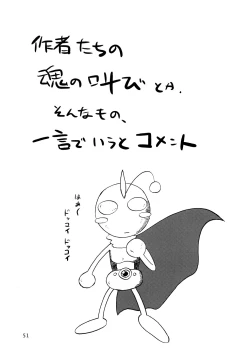 作者たちの
魂の叫びとA.
そんなもの、
一言でいうとコメント
はぁ〜
ドッコイドッコイ
51